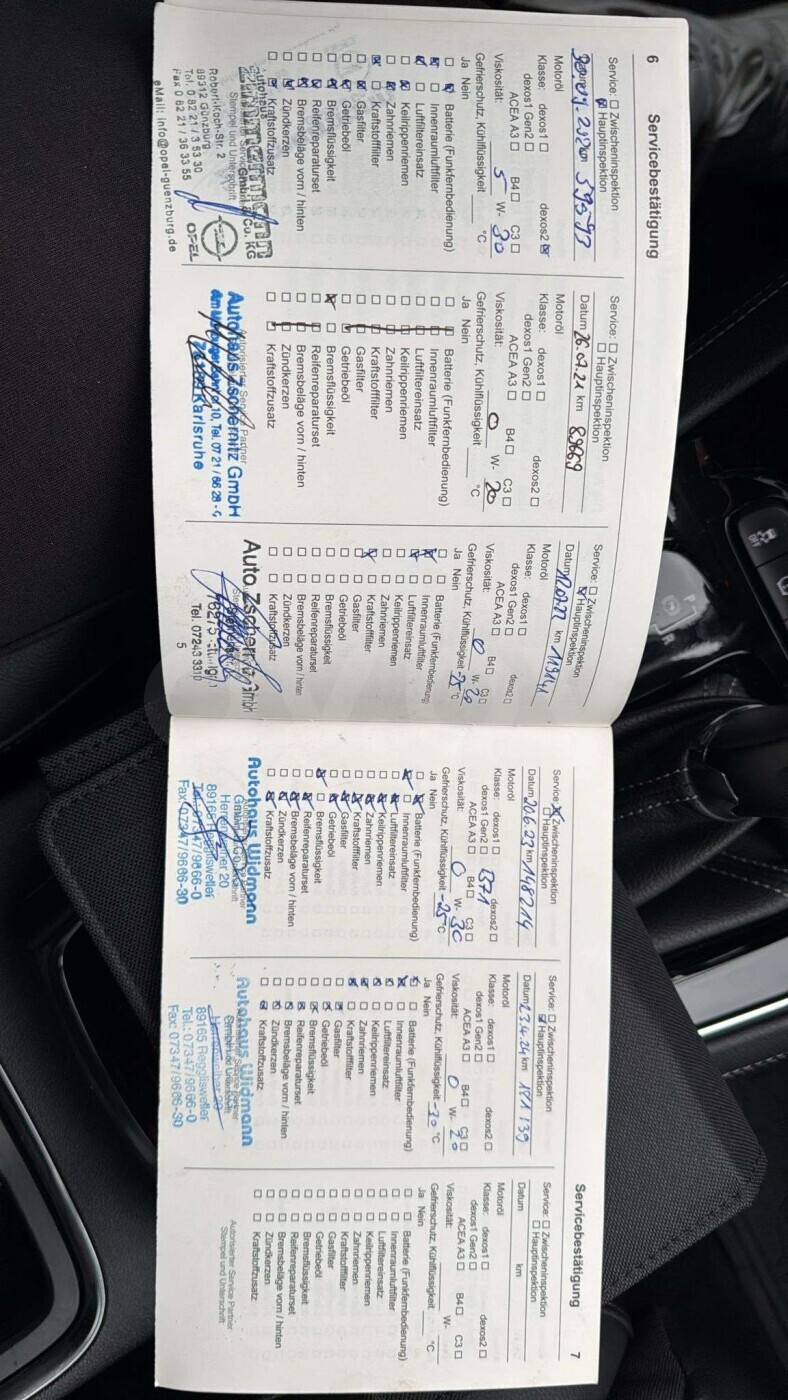 6
Servicebestätigung
Service: ☐ Zwischeninspektion
☒ Hauptinspektion
km 59593
Motoröl
Klasse: dexos1 ☐ dexos2 ☒
dexos1 Gen2 ☐
ACEA A3 ☐ B4 ☐ C3 ☐
Viskosität: 5 W- 30
Gefrierschutz, Kühlflüssigkeit °C
Ja Nein
☐ ☒ Batterie (Funkfernbedienung)
Innenraumluftfilter
Luftfiltereinsatz
Keilrippenriemen
Zahnriemen
Kraftstofffilter
Gasfilter
Getriebeöl
Bremsflüssigkeit
Reifenreparaturset
Bremsbeläge vorn / hinten
Zündkerzen
Kraftstoffzusatz
Autohaus
GmbH & Co. KG
Stempel und Unterschrift
Robert-Koch-Str. 2
89312 Günzburg
Tel. 0 82 21 / 3 53 30
Fax 0 82 21 / 36 33 55
eMail: info@opel-guenzburg.de
OPEL
Service: ☐ Zwischeninspektion
☐ Hauptinspektion
Datum 26.07.21 km 89669
Motoröl
Klasse: dexos1 ☐ dexos2 ☐
dexos1 Gen2 ☐
ACEA A3 ☐ B4 ☐ C3 ☐
Viskosität: 0 W- 20
Gefrierschutz, Kühlflüssigkeit °C
Ja Nein
Batterie (Funkfernbedienung)
Innenraumluftfilter
Luftfiltereinsatz
Keilrippenriemen
Zahnriemen
Kraftstofffilter
Gasfilter
Getriebeöl
☒ ☐ Bremsflüssigkeit
Reifenreparaturset
Bremsbeläge vorn / hinten
Zündkerzen
Kraftstoffzusatz
Autorisierter Service Partner
Autohaus Zschernitz GmbH
10, Tel. 07 21 / 66 28 -
Karlsruhe
Service: ☐ Zwischeninspektion
☒ Hauptinspektion
Datum 12.07.22 km 119141
Motoröl
Klasse: dexos1 ☐ dexos2 ☐
dexos1 Gen2 ☐
ACEA A3 ☐ B4 ☐ C3 ☐
Viskosität: 0 W- 20
Gefrierschutz, Kühlflüssigkeit -25 °C
Ja Nein
Batterie (Funkfernbedienung)
Innenraumluftfilter
Luftfiltereinsatz
Keilrippenriemen
Zahnriemen
Kraftstofffilter
Gasfilter
Getriebeöl
Bremsflüssigkeit
Reifenreparaturset
Bremsbeläge vorn / hinten
Zündkerzen
Kraftstoffzusatz
Auto Zschernitz GmbH
Tel. 07243 3310
5
Service: ☒ Zwischeninspektion
☐ Hauptinspektion
Datum 20.6.23 km 148214
Motoröl
Klasse: dexos1 ☐ dexos2 ☐
dexos1 Gen2 ☐
ACEA A3 ☐ B4 ☐ C3 ☐
Viskosität: 0 W- 30
Gefrierschutz, Kühlflüssigkeit -25 °C
Ja Nein
Batterie (Funkfernbedienung)
Innenraumluftfilter
Luftfiltereinsatz
Keilrippenriemen
Zahnriemen
Kraftstofffilter
Gasfilter
Getriebeöl
Bremsflüssigkeit
Reifenreparaturset
Bremsbeläge vorn / hinten
Zündkerzen
Kraftstoffzusatz
Autohaus Widmann
Tel.: 07347/9666-0
Fax: 07347/9666-30
Servicebestätigung
7
Service: ☐ Zwischeninspektion
☒ Hauptinspektion
Datum 23.4.24 km 181139
Motoröl
Klasse: dexos1 ☐ dexos2 ☐
dexos1 Gen2 ☐
ACEA A3 ☐ B4 ☐ C3 ☐
Viskosität: 0 W- 20
Gefrierschutz, Kühlflüssigkeit °C
Ja Nein
Batterie (Funkfernbedienung)
Innenraumluftfilter
Luftfiltereinsatz
Keilrippenriemen
Zahnriemen
Kraftstofffilter
Gasfilter
Getriebeöl
Bremsflüssigkeit
Reifenreparaturset
Bremsbeläge vorn / hinten
Zündkerzen
Kraftstoffzusatz
Autohaus Widmann
89165 Regglisweiler
Tel.: 07347/9666-0
Fax: 07347/9666-30
Service: ☐ Zwischeninspektion
☐ Hauptinspektion
Datum km
Motoröl
Klasse: dexos1 ☐ dexos2 ☐
dexos1 Gen2 ☐
ACEA A3 ☐ B4 ☐ C3 ☐
Viskosität: W-
Gefrierschutz, Kühlflüssigkeit °C
Ja Nein
☐ ☐ Batterie (Funkfernbedienung)
☐ ☐ Innenraumluftfilter
☐ ☐ Luftfiltereinsatz
☐ ☐ Keilrippenriemen
☐ ☐ Zahnriemen
☐ ☐ Kraftstofffilter
☐ ☐ Gasfilter
☐ ☐ Getriebeöl
☐ ☐ Bremsflüssigkeit
☐ ☐ Reifenreparaturset
☐ ☐ Bremsbeläge vorn / hinten
☐ ☐ Zündkerzen
☐ ☐ Kraftstoffzusatz
Autorisierter Service Partner
Stempel und Unterschrift